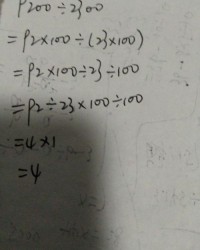 9200÷2300
=92×100÷(23×100)
=92×100÷23÷100
=92÷23×100÷100
=4×1
=4